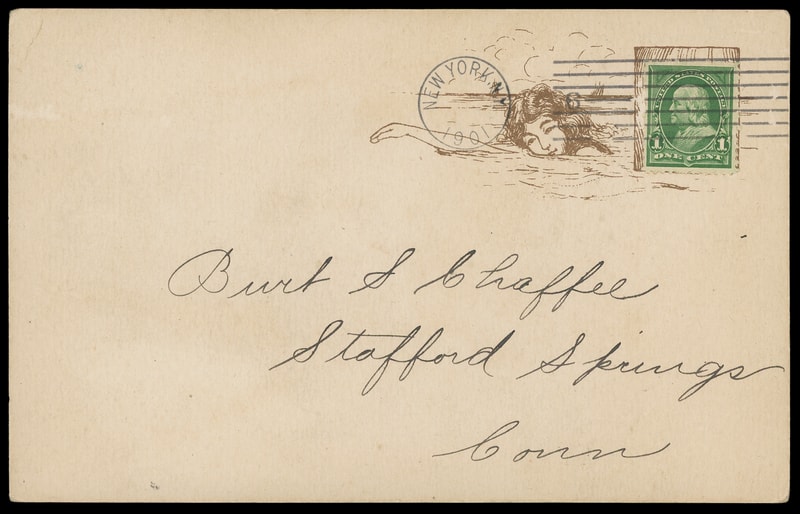 NEW YORK, N.Y.
1901
6
UNITED STATES POSTAGE
1 1
ONE CENT
Burt S Chaffee
Stafford Springs
Conn